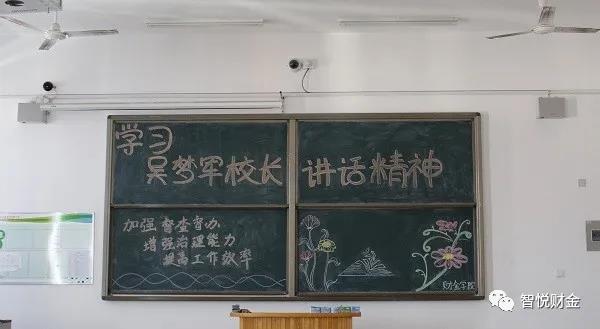 学习
吴梦军校长 讲话精神
加强督查督办
增强治理能力
提高工作效率
财金学院
智悦财金